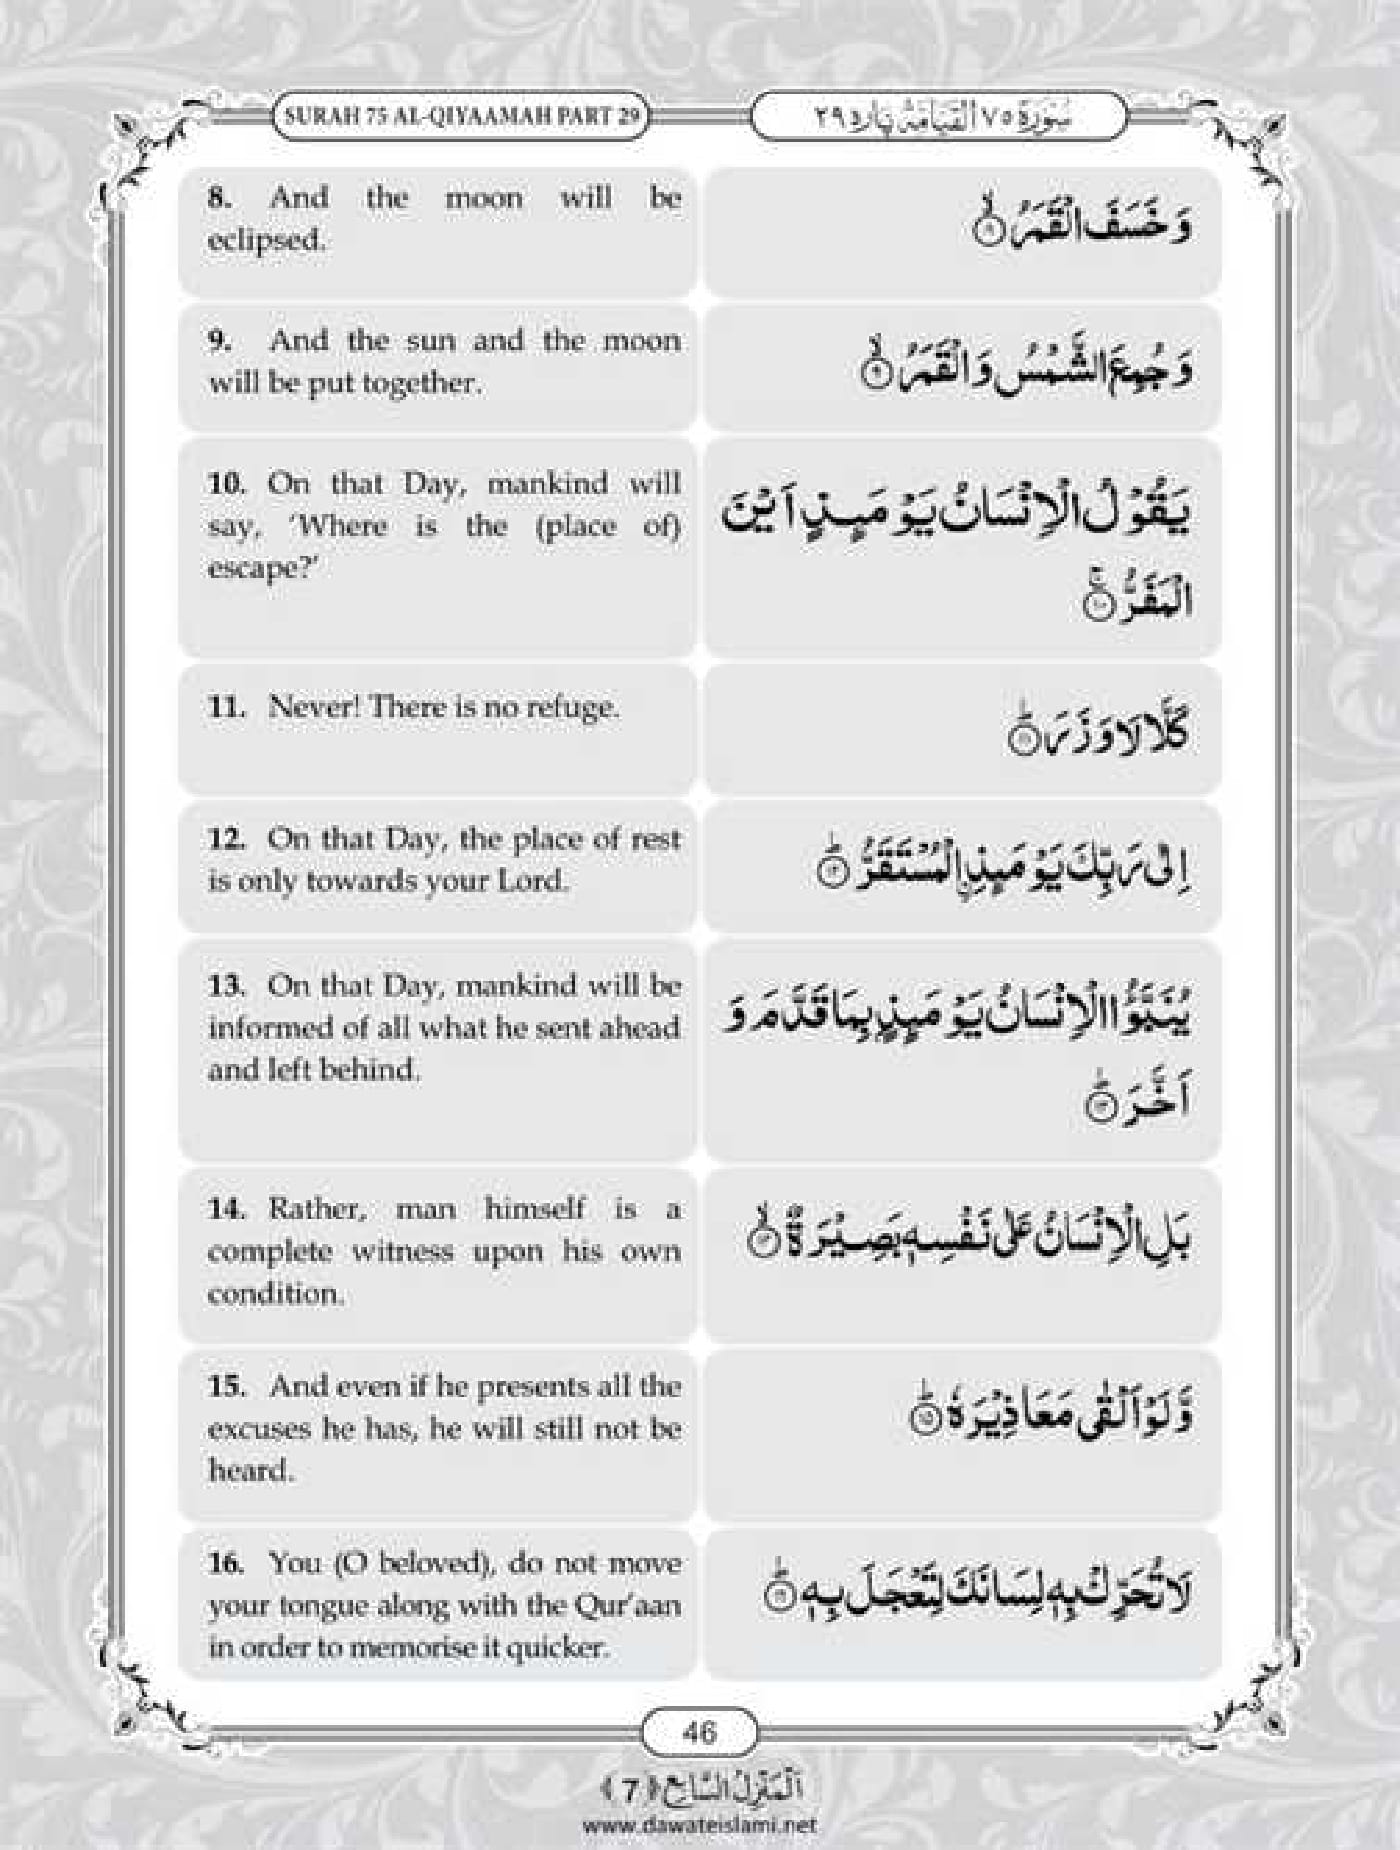 SURAH 75 AL-QIYAAMAH PART 29
سُوْرَةُ ٧٥ الْقِيَامَة پاره ٢٩
8. And the moon will be
eclipsed.
وَ خَسَفَ الْقَمَرُ ۙ﴿۸﴾
9. And the sun and the moon
will be put together.
وَ جُمِعَ الشَّمْسُ وَ الْقَمَرُ ۙ﴿۹﴾
10. On that Day, mankind will
say, ‘Where is the (place of)
escape?’
یَقُوْلُ الْاِنْسَانُ یَوْمَىٕذٍ اَیْنَ
الْمَفَرُّ ۚ﴿۱۰﴾
11. Never! There is no refuge.
كَلَّا لَا وَزَرَ ؕ﴿۱۱﴾
12. On that Day, the place of rest
is only towards your Lord.
اِلٰى رَبِّكَ یَوْمَىٕذِ ِ۟الْمُسْتَقَرُّ ؕ﴿۱۲﴾
13. On that Day, mankind will be
informed of all what he sent ahead
and left behind.
یُنَبَّؤُا الْاِنْسَانُ یَوْمَىٕذٍۭ بِمَا قَدَّمَ وَ
اَخَّرَ ؕ﴿۱۳﴾
14. Rather, man himself is a
complete witness upon his own
condition.
بَلِ الْاِنْسَانُ عَلٰى نَفْسِهٖ بَصِیْرَةٌ ۙ﴿۱۴﴾
15. And even if he presents all the
excuses he has, he will still not be
heard.
وَّ لَوْ اَلْقٰى مَعَاذِیْرَهٗ ؕ﴿۱۵﴾
16. You (O beloved), do not move
your tongue along with the Qur’aan
in order to memorise it quicker.
لَا تُحَرِّكْ بِهٖ لِسَانَكَ لِتَعْجَلَ بِهٖ ؕ﴿۱۶﴾
46
اَلْمَنْزِلُ السَّابِع ﴿7﴾
www.dawateislami.net